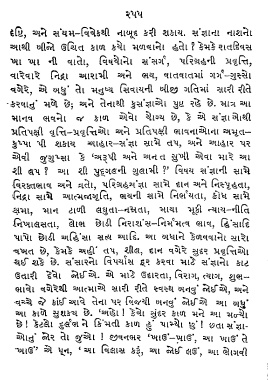 ૨૫૫
દષ્ટિ, અને સંયમ-વિવેકથી નાબૂદ કરી શકાય. સંજ્ઞાના નાશનો
આથી બીજો ઉચિત કાળ કયો મળવાનો હતો? કેમકે રાતદિવસ
ખા ખા ની વાતો, વિષયોનો સંસર્ગ, પરિગ્રહની પ્રવૃત્તિ,
વારેવારે નિદ્રા આરામી અને ભય, વાતવાતમાં ગર્વ-ગુસ્સો
વગેરે, એ બધું તો મનુષ્ય સિવાયની બીજી ગતિમાં સારી રીતિ
કરવાનું મળે છે; અને તેનાથી કુસંજ્ઞાઓ પુષ્ટ રહે છે. માત્ર આ
માનવ ભવનો જ કાળ એવો યોગ્ય છે, કે એ સંજ્ઞાઓથી
પ્રતિપક્ષી વૃત્તિ-પ્રવૃત્તિઓ અને પ્રતિપક્ષી ભાવનાઓના અમૃત-
કુંપ્પા પી શકાય આહાર-સંજ્ઞા સામે તપ, અને આહાર પર
એવી જુગુપ્સા કે 'અરૂપી અને અનંત સુખી એવા મારે આ
શી લપ? આ શી પુદ્ગલની ગુલામી?' વિષય સંજ્ઞાની સામે
વિરક્તભાવ અને વ્રતો, પરિગ્રહસંજ્ઞા સામે દાન અને નિઃસ્પૃહતા,
નિદ્રા સામે આત્મજાગૃતિ, ભયની સામે નિર્ભયતા, ક્રોધ સામે
ક્ષમા, માન ટાળી લઘુતા-નમ્રતા, માયા મૂકી ન્યાય-નીતિ
નિખાલસતા, લોભ છોડી નિરાશંસ-નિર્મમત્વ ભાવ, હિંસાદિ
પાપો છોડી અહિંસા સત્ય આદિ. આ બધાને કેળવવાનો સારો
વખત છે, કેમકે અહીં તપ, શીલ, દાન વગેરે સુંદર પ્રવૃત્તિઓ
થઈ શકે છે. સંસારનો વિપર્યાસ દૂર કરવા માટે સંજ્ઞાનો કાટ
ઉતારી દેવો જોઈએ. એ માટે ઉદારતા, વિરાગ, ત્યાગ, શુભ-
ભાવો વગેરેથી આત્માએ સારી રીતે સ્વસ્થ બનવું જોઈએ, અને
વચ્ચે જે કાંઈ આવે તેના પર વિજયી બનવું જોઈએ આ બધું
આ કાળે સુશક્ય છે. 'અહો! કેવો સુંદર કાળ મને આ મળ્યો
છે! કેટલો દુર્લભ ને કિંમતી કાળ હું પામ્યો છું! છતા સંજ્ઞા-
ઓનું જોર તો જુઓ! જીવનભર 'ખાઉં-ખાઉં, આ ખાઉં તે
ખાઉં' એ ધૂન, 'આ વિલાસ કરું, આ જોઈ લઉં, આ ભોગવી